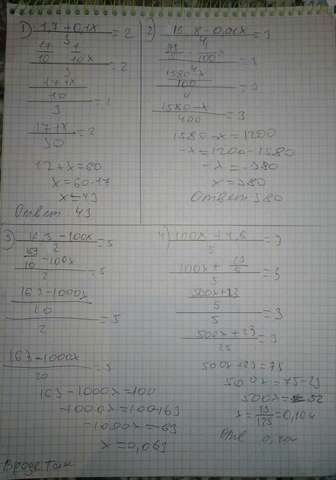 1) (1,7+0,1x)/3 = 2
(17/10 + 1/10x)/3 = 2
((17+x)/10)/3 = 2
(17+x)/30 = 2
17+x=60
x=60-17
x=43
Ответ 43
2) (15,8-0,01x)/4 = 3
((1580-x)/100)/4 = 3
(1580-x)/400 = 3
1580-x=1200
-x=1200-1580
-x=-380
x=380
Ответ 380
3) (16,3-100x)/2 = 5
(163/10 -100x)/2 = 5
((163-1000x)/10)/2 = 5
(163-1000x)/20 = 5
163-1000x=100
-1000x=100-163
-1000x=-63
x=0,063
Вроде так
4) (100x+4,6)/5 = 3
(100x+23/5)/5 = 3
((500x+23)/5)/5 = 3
(500x+23)/25 = 3
500x+23=75
500x=75-23
500x=52
x=13/125=0,104